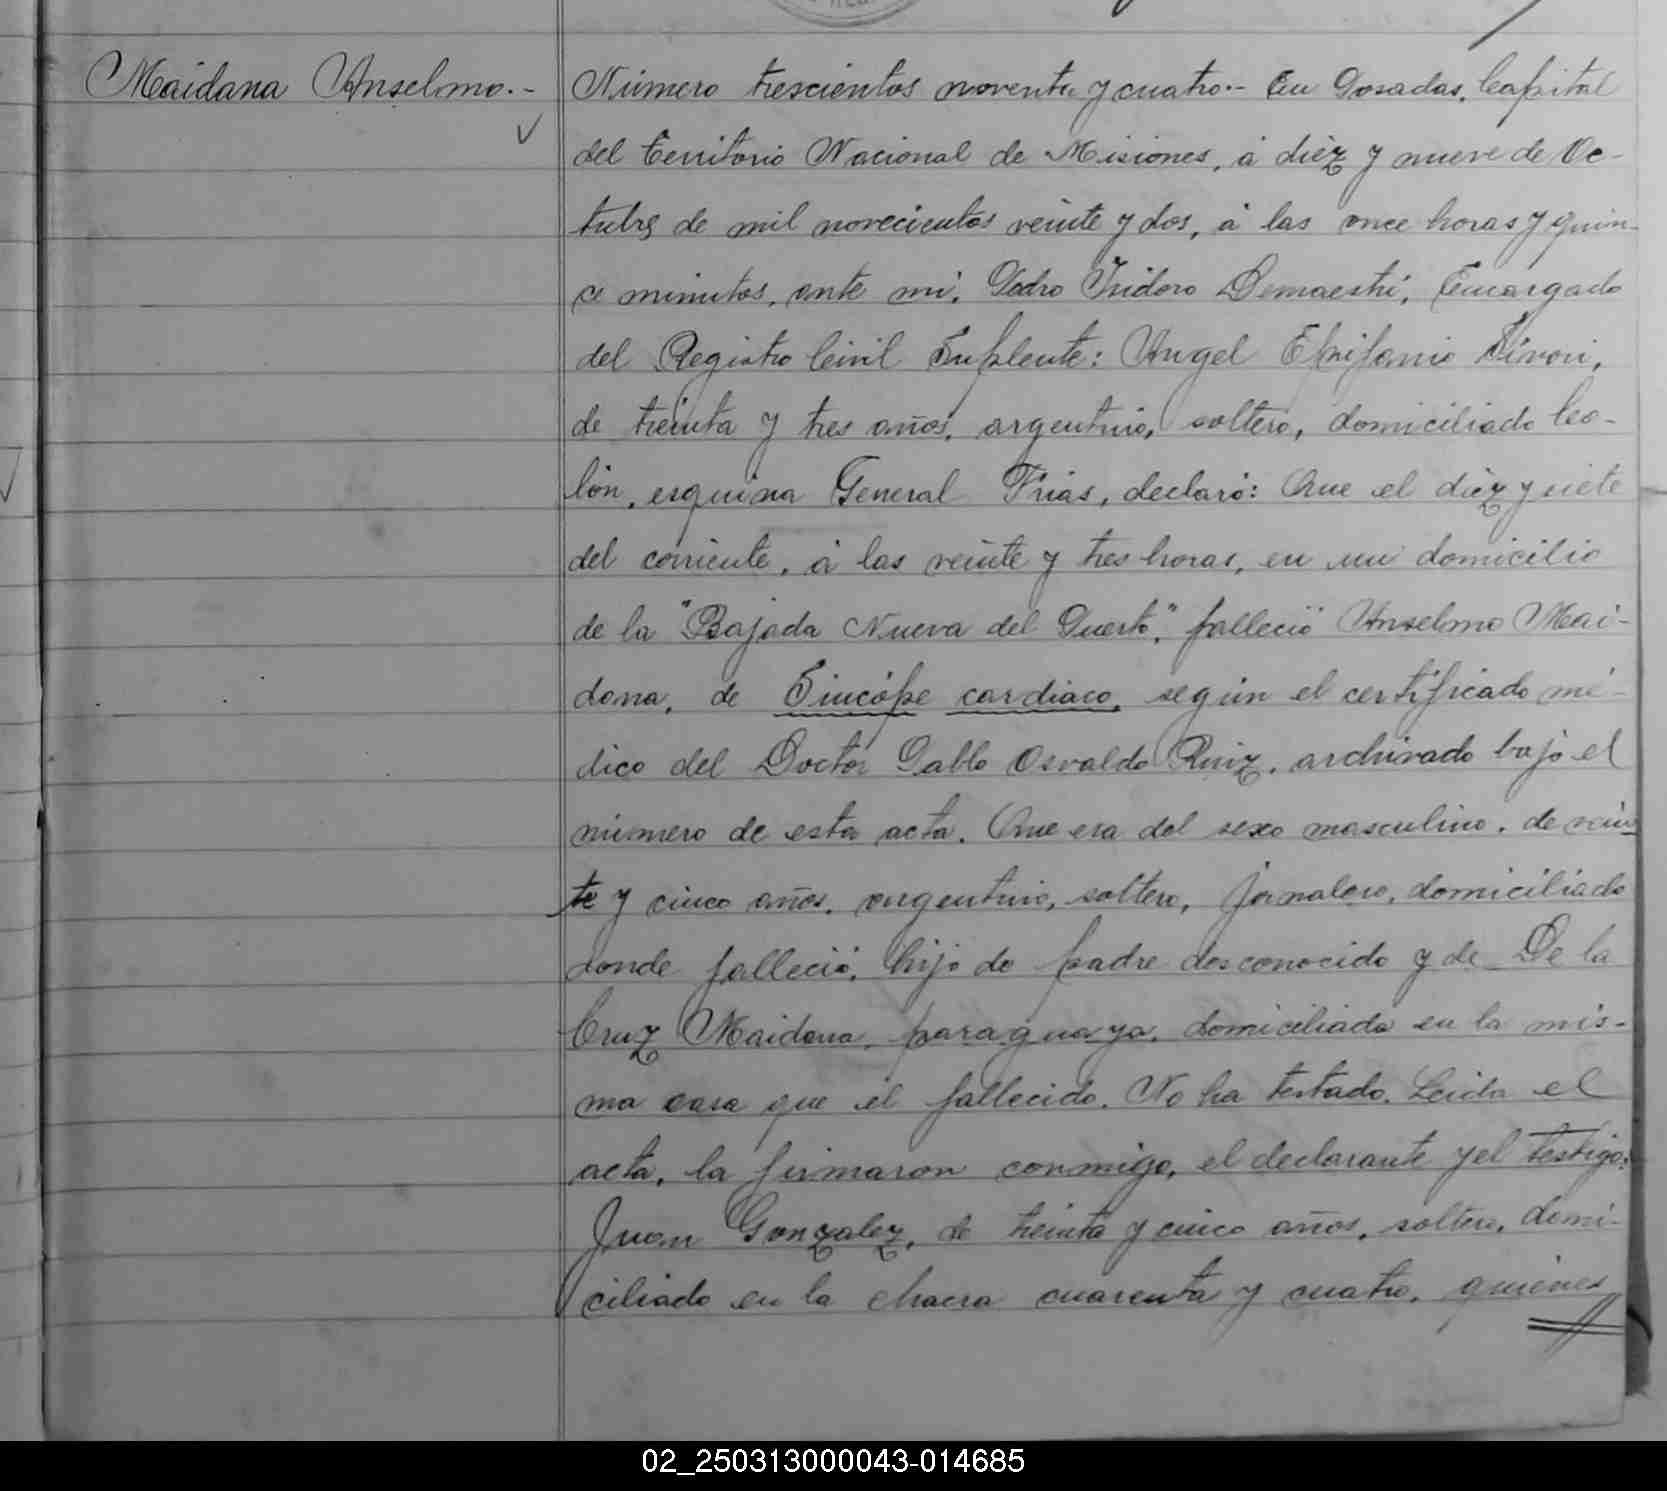 Maidana Anselmo.-
Número trescientos noventa y cuatro.- En Posadas, Capital
del Territorio Nacional de Misiones, á diéz y nueve de Oc-
tubre de mil novecientos veinte y dos, á las once horas y quin-
ce minutos, ante mi, Pedro Isidoro Demaestri, Encargado
del Registro Civil Suplente: Angel Epifanio Sivori,
de treinta y tres años, argentino, soltero, domiciliado Co-
lón, esquina General Frias, declaró: Que el diéz y siete
del corriente, á las veinte y tres horas, en un domicilio
de la "Bajada Nueva del Puerto", falleció Anselmo Mai-
dana, de Sincópe cardiaco, según el certificado mé-
dico del Doctor Pablo Osvaldo Ruiz, archivado bajo el
número de esta acta. Que era del sexo masculino, de vein
te y cinco años, argentino, soltero, jornalero, domiciliado
donde falleció, hijo de padre desconocido y de De la
Cruz Maidana, paraguaya, domiciliada en la mis-
ma casa que el fallecido. No ha testado. Leida el
acta, la firmaron conmigo, el declarante y el testigo:
Juan Gonzalez, de treinta y cinco años, soltero, domi-
ciliado en la chacra cuarenta y cuatro, quienes
02_250313000043-014685